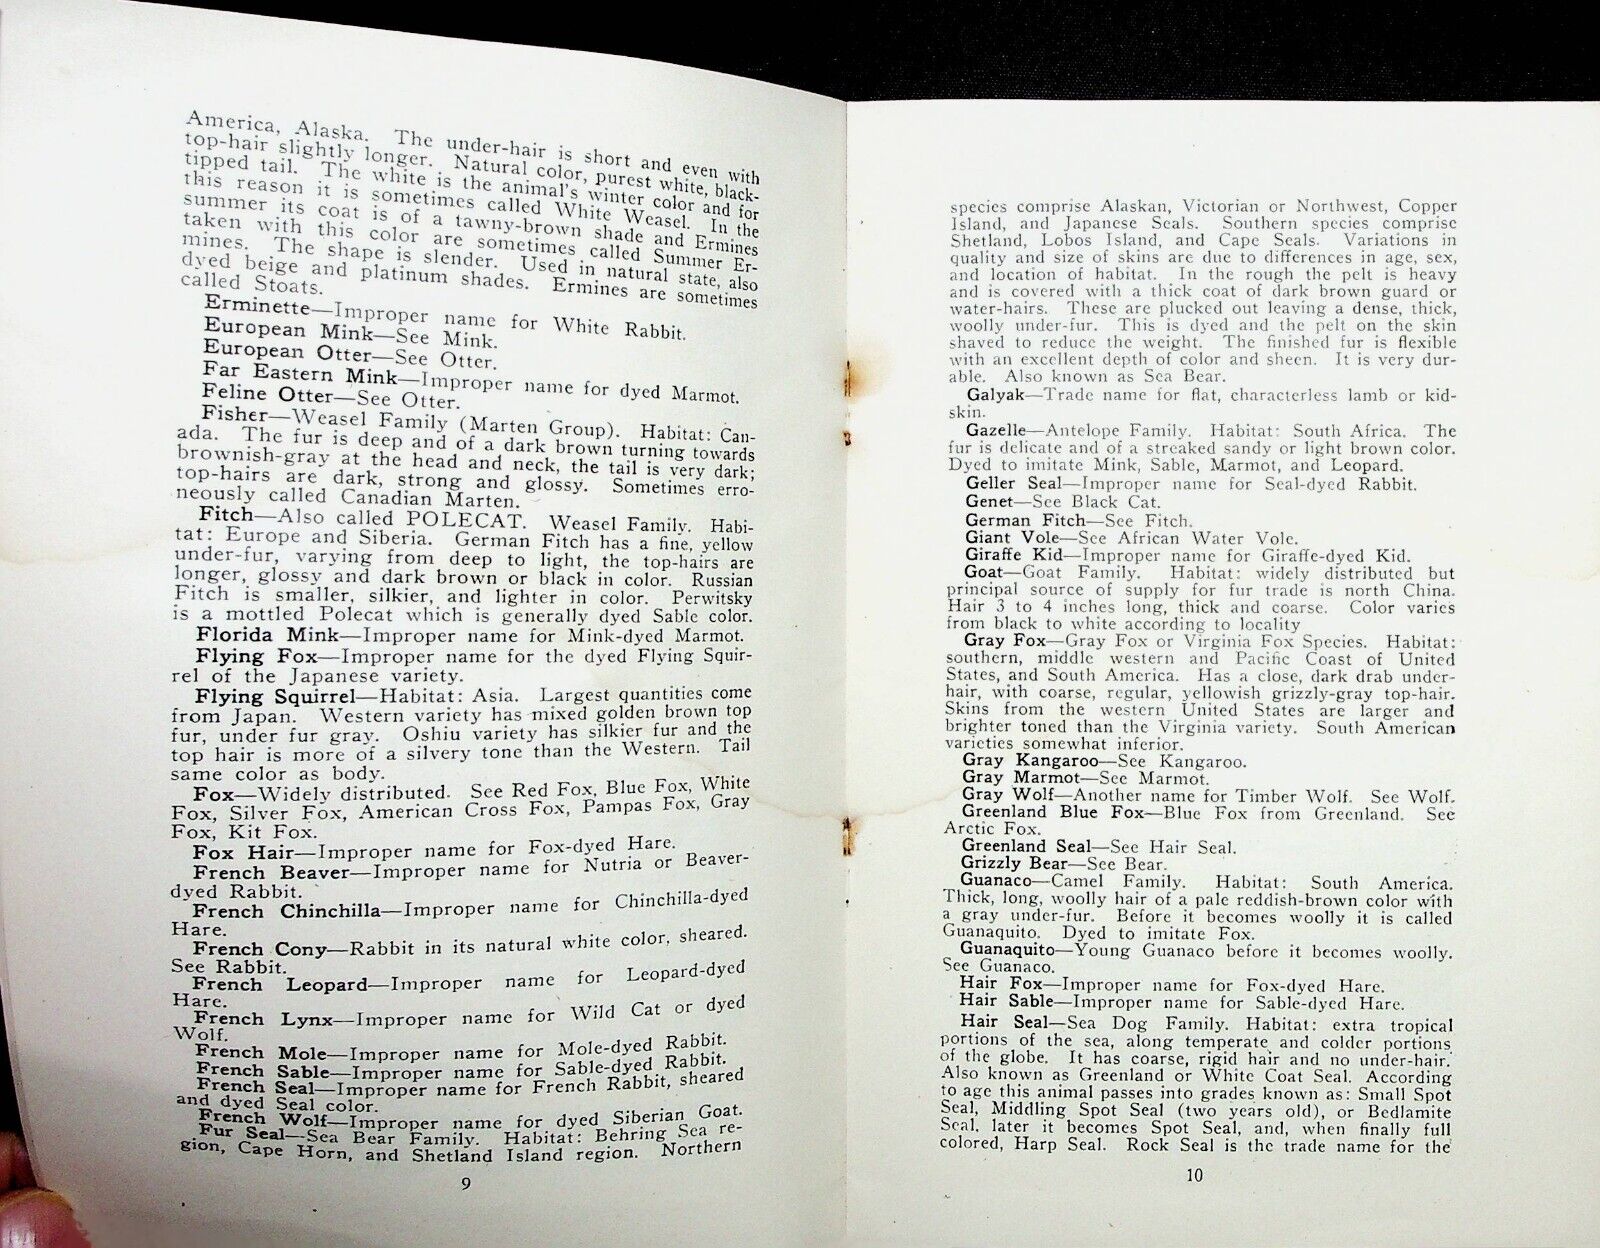 America, Alaska. The under-hair is short and even with
top-hair slightly longer. Natural color, purest white, black-
tipped tail. The white is the animal's winter color and for
this reason it is sometimes called White Weasel. In the
summer its coat is of a tawny-brown shade and Ermines
taken with this color are sometimes called Summer Er-
mines. The shape is slender. Used in natural state, also
dyed beige and platinum shades. Ermines are sometimes
called Stoats.
Erminette—Improper name for White Rabbit.
European Mink—See Mink.
European Otter—See Otter.
Far Eastern Mink—Improper name for dyed Marmot.
Feline Otter—See Otter.
Fisher—Weasel Family (Marten Group). Habitat: Can-
ada. The fur is deep and of a dark brown turning towards
brownish-gray at the head and neck, the tail is very dark;
top-hairs are dark, strong and glossy. Sometimes erro-
neously called Canadian Marten.
Fitch—Also called POLECAT. Weasel Family. Habi-
tat: Europe and Siberia. German Fitch has a fine, yellow
under-fur, varying from deep to light, the top-hairs are
longer, glossy and dark brown or black in color. Russian
Fitch is smaller, silkier, and lighter in color. Perwitsky
is a mottled Polecat which is generally dyed Sable color.
Florida Mink—Improper name for Mink-dyed Marmot.
Flying Fox—Improper name for the dyed Flying Squir-
rel of the Japanese variety.
Flying Squirrel—Habitat: Asia. Largest quantities come
from Japan. Western variety has mixed golden brown top
fur, under fur gray. Oshiu variety has silkier fur and the
top hair is more of a silvery tone than the Western. Tail
same color as body.
Fox—Widely distributed. See Red Fox, Blue Fox, White
Fox, Silver Fox, American Cross Fox, Pampas Fox, Gray
Fox, Kit Fox.
Fox Hair—Improper name for Fox-dyed Hare.
French Beaver—Improper name for Nutria or Beaver-
dyed Rabbit.
French Chinchilla—Improper name for Chinchilla-dyed
Hare.
French Cony—Rabbit in its natural white color, sheared.
See Rabbit.
French Leopard—Improper name for Leopard-dyed
Hare.
French Lynx—Improper name for Wild Cat or dyed
Wolf.
French Mole—Improper name for Mole-dyed Rabbit.
French Sable—Improper name for Sable-dyed Rabbit.
French Seal—Improper name for French Rabbit, sheared
and dyed Seal color.
French Wolf—Improper name for dyed Siberian Goat.
Fur Seal—Sea Bear Family. Habitat: Behring Sea re-
gion, Cape Horn, and Shetland Island region. Northern
9
species comprise Alaskan, Victorian or Northwest, Copper
Island, and Japanese Seals. Southern species comprise
Shetland, Lobos Island, and Cape Seals. Variations in
quality and size of skins are due to differences in age, sex,
and location of habitat. In the rough the pelt is heavy
and is covered with a thick coat of dark brown guard or
water-hairs. These are plucked out leaving a dense, thick,
woolly under-fur. This is dyed and the pelt on the skin
shaved to reduce the weight. The finished fur is flexible
with an excellent depth of color and sheen. It is very dur-
able. Also known as Sea Bear.
Galyak—Trade name for flat, characterless lamb or kid-
skin.
Gazelle—Antelope Family. Habitat: South Africa. The
fur is delicate and of a streaked sandy or light brown color.
Dyed to imitate Mink, Sable, Marmot, and Leopard.
Geller Seal—Improper name for Seal-dyed Rabbit.
Genet—See Black Cat.
German Fitch—See Fitch.
Giant Vole—See African Water Vole.
Giraffe Kid—Improper name for Giraffe-dyed Kid.
Goat—Goat Family. Habitat: widely distributed but
principal source of supply for fur trade is north China.
Hair 3 to 4 inches long, thick and coarse. Color varies
from black to white according to locality
Gray Fox—Gray Fox or Virginia Fox Species. Habitat:
southern, middle western and Pacific Coast of United
States, and South America. Has a close, dark drab under-
hair, with coarse, regular, yellowish grizzly-gray top-hair.
Skins from the western United States are larger and
brighter toned than the Virginia variety. South American
varieties somewhat inferior.
Gray Kangaroo—See Kangaroo.
Gray Marmot—See Marmot.
Gray Wolf—Another name for Timber Wolf. See Wolf.
Greenland Blue Fox—Blue Fox from Greenland. See
Arctic Fox.
Greenland Seal—See Hair Seal.
Grizzly Bear—See Bear.
Guanaco—Camel Family. Habitat: South America.
Thick, long, woolly hair of a pale reddish-brown color with
a gray under-fur. Before it becomes woolly it is called
Guanaquito. Dyed to imitate Fox.
Guanaquito—Young Guanaco before it becomes woolly.
See Guanaco.
Hair Fox—Improper name for Fox-dyed Hare.
Hair Sable—Improper name for Sable-dyed Hare.
Hair Seal—Sea Dog Family. Habitat: extra tropical
portions of the sea, along temperate and colder portions
of the globe. It has coarse, rigid hair and no under-hair.
Also known as Greenland or White Coat Seal. According
to age this animal passes into grades known as: Small Spot
Seal, Middling Spot Seal (two years old), or Bedlamite
Seal, later it becomes Spot Seal, and, when finally full
colored, Harp Seal. Rock Seal is the trade name for the
10